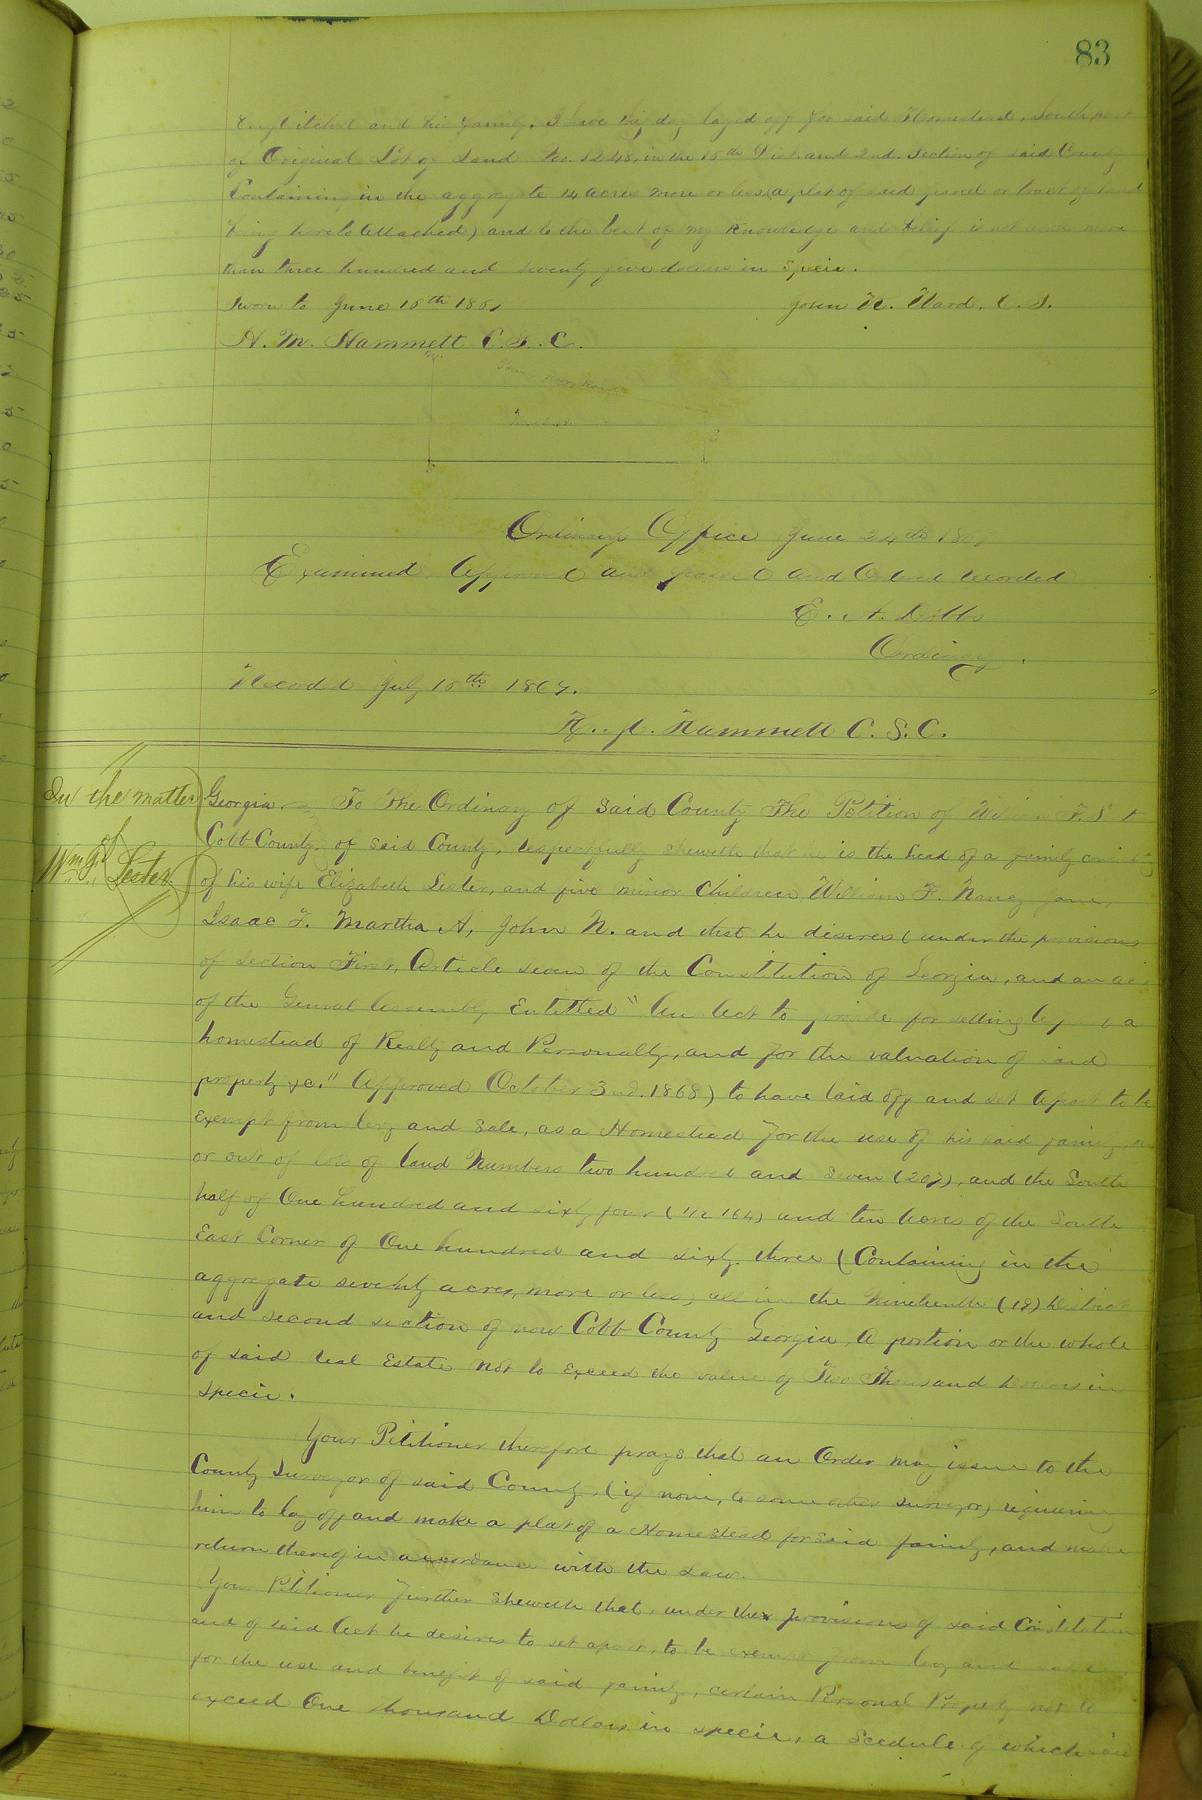 83
and his family. I have this day layed off for said Homestead, South part
of Original Lot of Land No. 1248, in the 18th Dist. and 2nd. Section of said County
Containing in the aggregate 14 acres more or less, (a plat of said parcel or tract of land
being hereto attached) and to the best of my Knowledge and belief is not worth more
than three hundred and seventy five dollars in Specie.
Sworn to June 18th John N. Ward. C. S.
H. M. Hammett C. S. C.
Ordinarys Office June 24th
Examined Approved and granted and Ordered recorded
E. A. Dobbs
Ordinary.
Recorded July 15th 1869.
Hammett C. S. C.
In the matter
of
Wm. Lester
Georgia To The Ordinary of said County The Petition of
Cobb County. of said County, respectfully sheweth that he is the head of a family consisting
of his wife Elizabeth Lester, and five minor Children William F. Nancy Jane,
Isaac F. Martha A, John N. and that he desires (under the provisions
of section First, Article seven of the Constitution of Georgia, and an act
of the General Assembly Entitled "An Act to provide for setting apart a
homestead of Realty and Personalty, and for the valuation of said
property &c." Approved October 3rd. 1868) to have laid off and set apart to be
exempt from levy and sale, as a Homestead for the use of his said family, on
or out of lots of land Numbers two hundred and seven (207), and the South
half of One hundred and sixty four (1/2 164) and ten Acres of the South
East Corner of One hundred and sixty three (Containing in the
aggregate seventy acres, more or less, all in the Nineteenth (19) District
and second section of now Cobb County Georgia. A portion or the whole
of said real Estate not to exceed the value of Two Thousand Dollars in
specie.
Your Petitioner therefore prays that an Order may issue to the
County Surveyor of said County, (if none, to some other surveyor) requiring
him to lay off and make a plat of a Homestead for said family, and make
return thereof in accordance with the Law.
Your Petitioner Further Sheweth that, under the provisions of said Constitution
and of said Act he desires to set apart, to be exempt from levy and sale
for the use and benefit of said family, certain Personal Property not to
exceed One thousand Dollars in specie, a Scedule of which